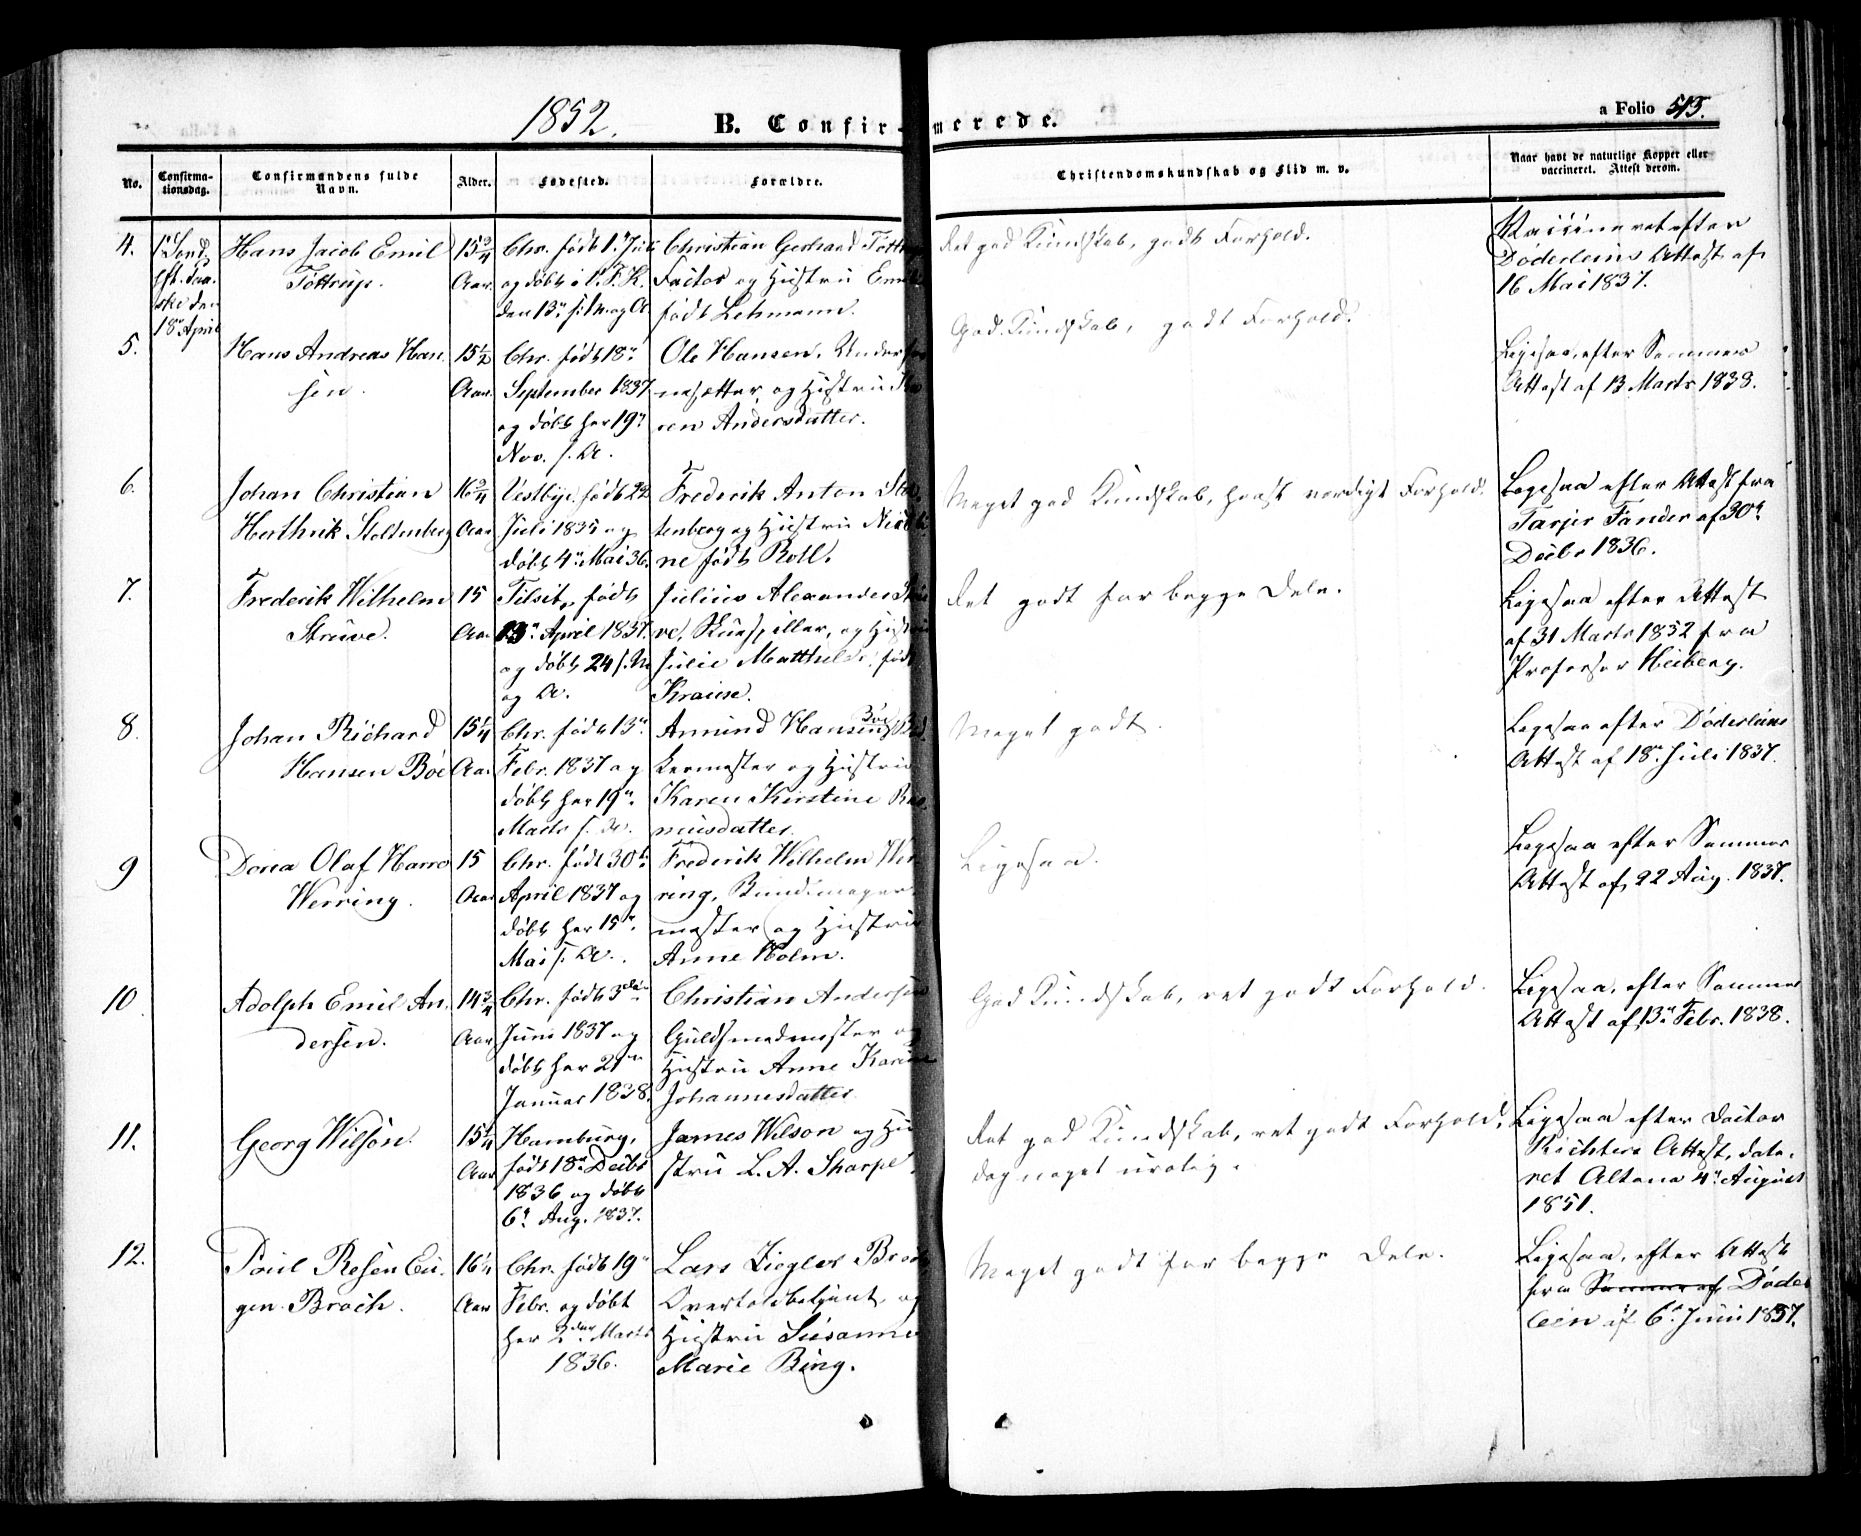 1852.
B. Confirmerede.
a Folio 515.
No.
Confirma-
tionsdag.
Confirmandens fulde
Navn.
Alder.
Fødested.
Forældre.
Christendomskundskab og Flid m. v.
Naar havt de naturlige Kopper eller
vaccineret. Attest derom.
4.
1ste Sønd.
eft. Paa-
ske den
18de April
Hans Jacob Emil
Tøttrup.
15 3/4
Aar.
Chr. født 1ste Juli
og døbt i
den 13de s. M. og A.
Christian Gerhard Tøttrup
Factor og Hustru
født Lehmann.
Ret god Kundskab, godt Forhold.
Vaccineret efter
Døderleins Attest af
16 Mai 1837.
5.
Hans Andreas Han-
sen.
15 1/2
Aar.
Chr. født 18de
September 1837
og døbt her 19de
Nov. s. A.
Ole Hansen,
og Hustru Ka-
ren Andersdatter.
God Kundskab, godt Forhold.
Ligesaa, efter Sommers
Attest af 13 Marts 1838.
6.
Johan Christian
Herthnik Stoltenberg
16 3/4
Aar.
Vestbye, født 22
Juli 1835 og
døbt 4de Mai 36.
Frederik Anton Stol-
tenberg og Hustru
ne født Roll.
Meget god Kundskab, høist værdigt Forhold.
Ligesaa efter Attest fra
Tarjer Fander af 30te
Decbr 1836.
7.
Frederik Wilhelm
Strüve.
15
Aar
Tilsit, født
13de April 1837.
og døbt 24 s. M.
og A.
Julius Alexander Strü-
ve, Skuespiller, og Hustru
Julie Matthilde, født
Krause.
Ret godt for begge Dele.
Ligesaa efter Attest
af 31 Marts 1852 fra
Professor Heiberg.
8.
Johan Richard
Hansen Böe
15 1/4
Aar.
Chr. født 13de
Febr. 1837 og
døbt her 19de
Marts s. A.
Amund Hansen Böe,
og Hustru
Karen Kirstine Ras-
musdatter.
Meget godt.
Ligesaa efter Døderleins
Attest af 18de Juli 1837.
9
Dona Olaf Harro
Werring.
15
Aar
Chr. født 30te
April 1837 og
døbt her 15de
Mai s. A.
Frederik Wilhelm Wer-
ring, Bundtmager-
mester og Hustru
Anne Holm.
Ligesaa.
Ligesaa efter Sommers
Attest af 22 Aug. 1837.
10
Adolph Emil An-
dersen.
14 3/4
Aar
Chr. født 3die
Juni 1837 og
døbt her 21de
Januar 1838.
Christian Andersen
Guldsmedmester og
Hustru Anne Karine
Johannesdatter.
God Kundskab, ret godt Forhold.
Ligesaa, efter Sommers
Attest af 13de Febr. 1838.
11.
Georg Wilson.
15 1/4
Aar
Hamburg,
født 18de Decbr
1836 og døbt
6te Aug. 1837.
James Wilson og Hu-
stru L. A. Sharpe.
Ret god Kundskab, ret godt Forhold,
dog noget urolig.
Ligesaa efter Doctor
Richters Attest, date-
ret Altona 4de August
1851.
12.
Poul Resen Eu-
gen Broch.
16 1/4
Aar
Chr. født 19de
Febr. og døbt
her 2den Marts
1836.
Lars Ziegler Broch
Overtoldbetjent, og
Hustru Susanne
Marie Bing.
Meget godt for begge Dele.
Ligesaa, efter Attest
fra Sommer af Døder-
lein af 6te Juni 1837.